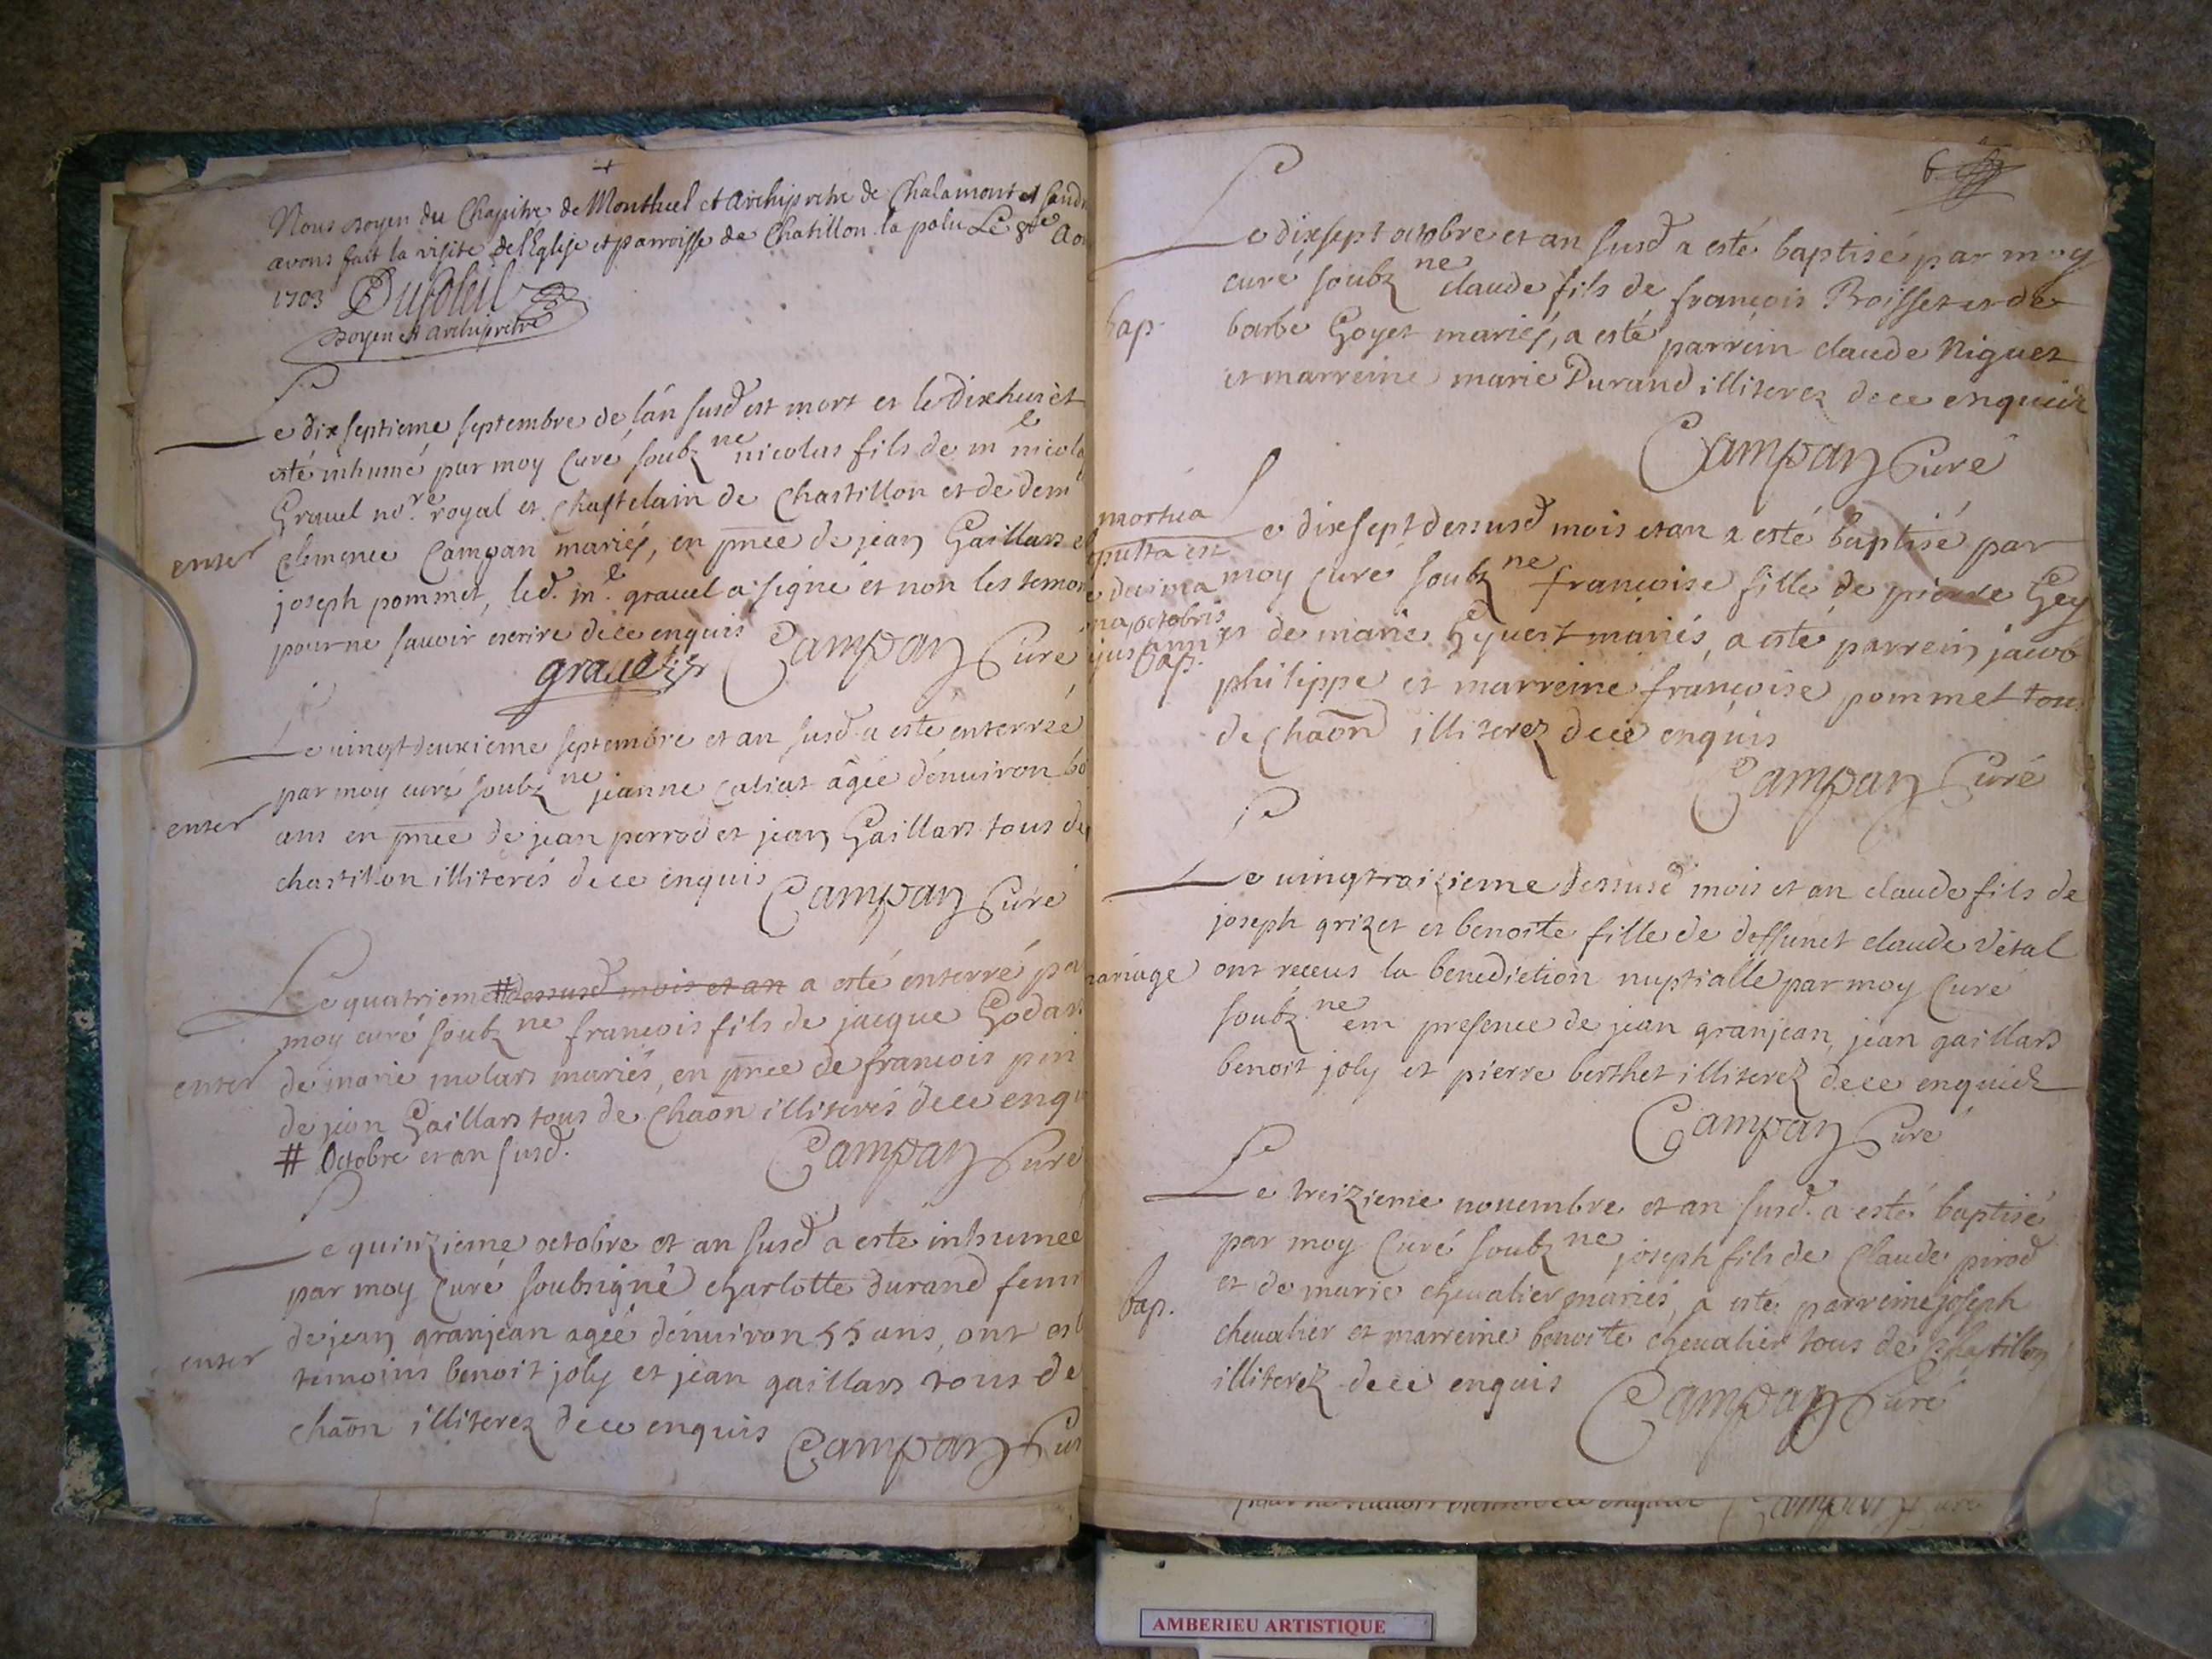 +
Nous doyen du Chapitre de Montluel et Archipretre de Chalamont et Sand
avons fait la visite de l'Eglise et parroisse de Chatillon la palu Le 8e Aou
1703 Dusoleil
doyen et archipretre
Le dixseptieme septembre de l'an susd est mort et le dixhuict
esté inhumé par moy Curé soubz ne nicolas fils de me nicola
Grauel nore royal et Chastelain de Chastillon et de dem
enter
Clemence Campan mariés, en pnce de jean Gaillard et
joseph pommet, led. me. grauel a signé et non les temoi
pour ne sauoir escrire de ce enquis
grauel
Campan Curé
Le uingtdeuxieme septembre et an susd a esté enterrée
par moy curé soubz ne jeanne Caliat âgée d'enuiron
enter
ans en pnce de jean perrod et jean Gaillard tous de
chastillon illiterés de ce enquis
Campan Curé
Le quatrieme # dessusd mois et an a esté enterré pa
moy curé soubz ne francois fils de jacque Godar
enter
de marie molard mariés, en pnce de francois
de jean Gaillard tous de Chaon illiterés de ce enqu
# Octobre et an susd.
Campan Curé
Le quinzieme octobre et an susd a esté inhumée
par moy Curé soubsigné charlotte durand fem
de jean granjean agée d'enuiron 55 ans, ont est
enter
temoins benoit joly et jean gaillard tous de
chaon illiterez de ce enquis
Campan Cur
6
Le dixsept octobre et an susd a esté baptisé par moy
curé soubz ne claude fils de francois Boisset et de
bap.
barbe Goyet mariés, a esté parrein claude Niguet
et marreine marie Durand illiterez de ce enquis
Campan Curé
mortua
pulta est
decima
na octobris
jus anni
bap.
Le dixsept dessusd mois et an a esté baptisé par
moy Curé soubz ne francoise fille de pierre Gey
et de marie Geyuest mariés, a esté parrein jacob
philippe et marreine francoise pommet tou
de Chaon illiterez de ce enquis
Campan Curé
Le uingtroizieme dessusd mois et an claude fils de
joseph grizet et benoite fille de deffunct claude Vétal
mariage
ont receus la benediction nuptialle par moy Curé
soubz. ne em presence de jean granjean, jean gaillard
benoit joly et pierre berthet illiterez de ce enquis
Campan Curé
Le treizieme nouembre et an susd. a esté baptisé
par moy Curé soubz ne joseph fils de Claude pirod
bap.
et de marie cheualier mariés, a esté parreine joseph
cheualier et marreine benoite cheualier tous de Chastillon
illiterez de ce enquis
Campan Curé
AMBERIEU ARTISTIQUE